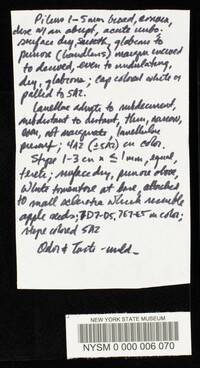 Pileus 1-5 mm broad, convex,
disc w/ an abrupt, acute umbo.
surface dry, smooth, glabrous to
pruinose (handlens) margin incurved
to decurved, even to undulating,
dry, glabrous; cap colored white or
pallid to 5A2.
Lamellae adnate to subdecurrent,
subdistant to distant, thin, narrow,
even, not marginate, lamellulae
present; 4A2 (±5A2) in color.
Stipe 1-3 cm x ≤1mm, equal,
terete; surface dry, pruinose above,
white tomentose at base, attached
to small sclerotia which resemble
apple seeds; 7D7-D5, 7E7-E5 in color;
stipe colored 5A2
Odor & Taste - mild.
NEW YORK STATE MUSEUM
NYSM 0 000 006 070